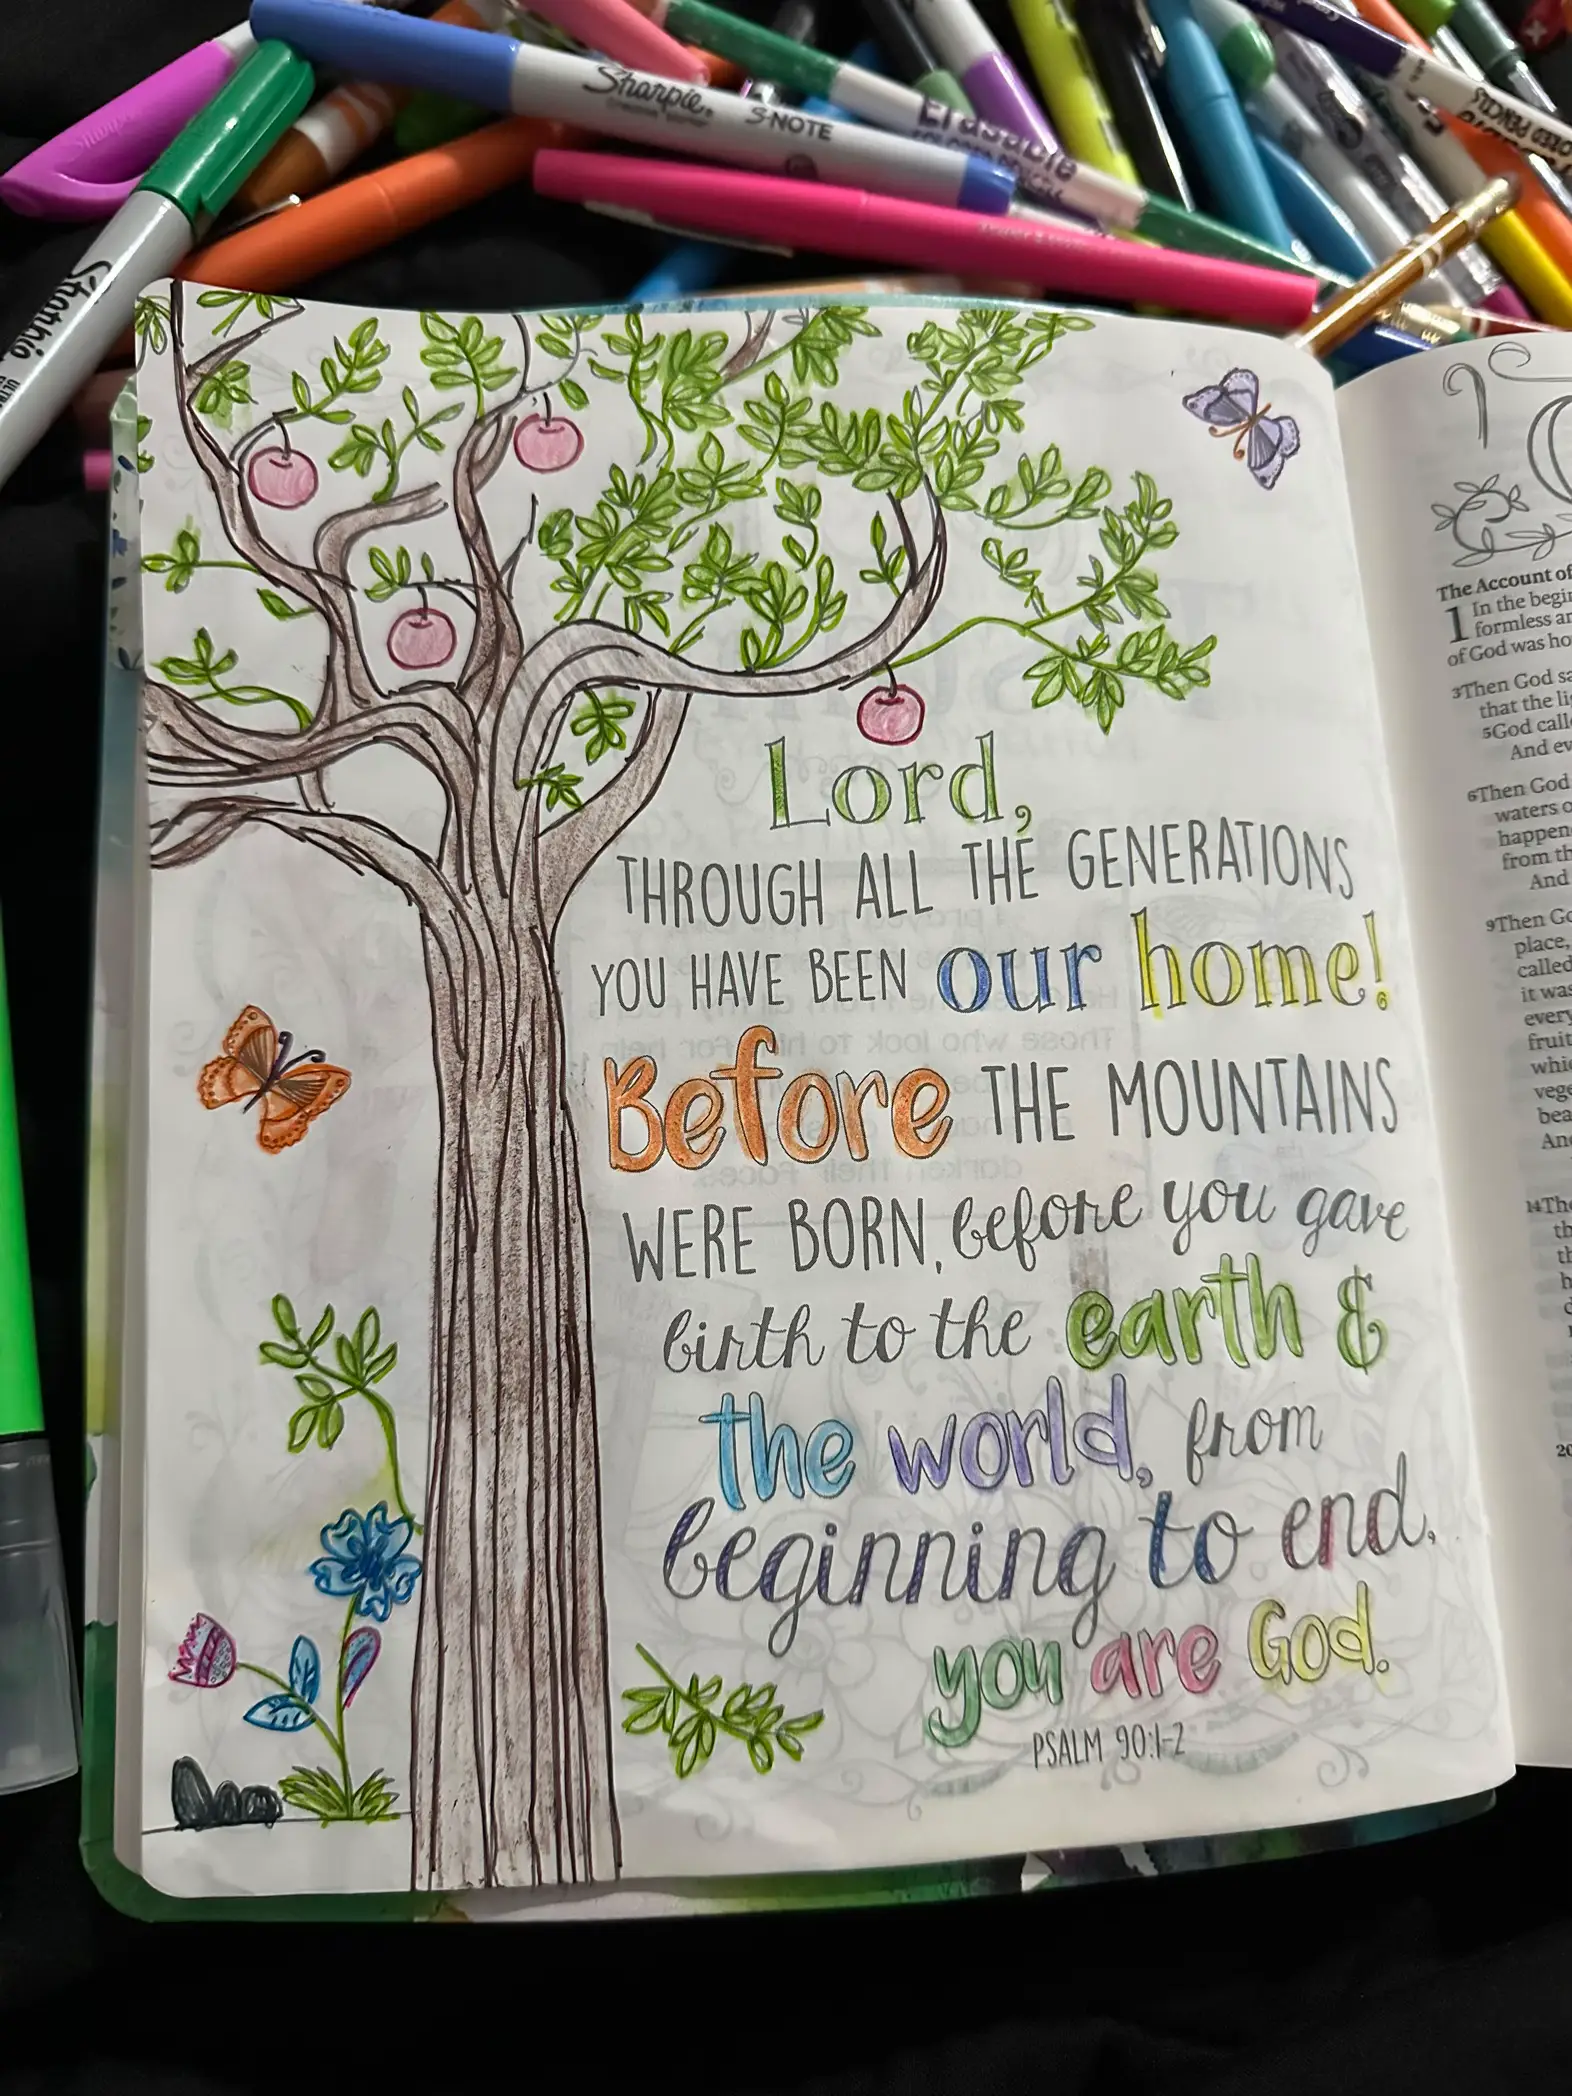 Sharpie
S-NOTE
Erasable
Sharpie
Lord,
THROUGH ALL THE GENERATIONS
YOU HAVE BEEN our home!
Before THE MOUNTAINS
WERE BORN, before you gave
birth to the earth &
the world, from
beginning to end,
you are God.
PSALM 90:1-2
The Account of
1 In the begin
formless an
of God was ho
3Then God sa
that the lig
5God calle
And ev
6Then God
waters o
happene
from th
And
9Then Go
place,
called
it was
every
fruit
whic
vege
bea
An
14The
th
th
h
20